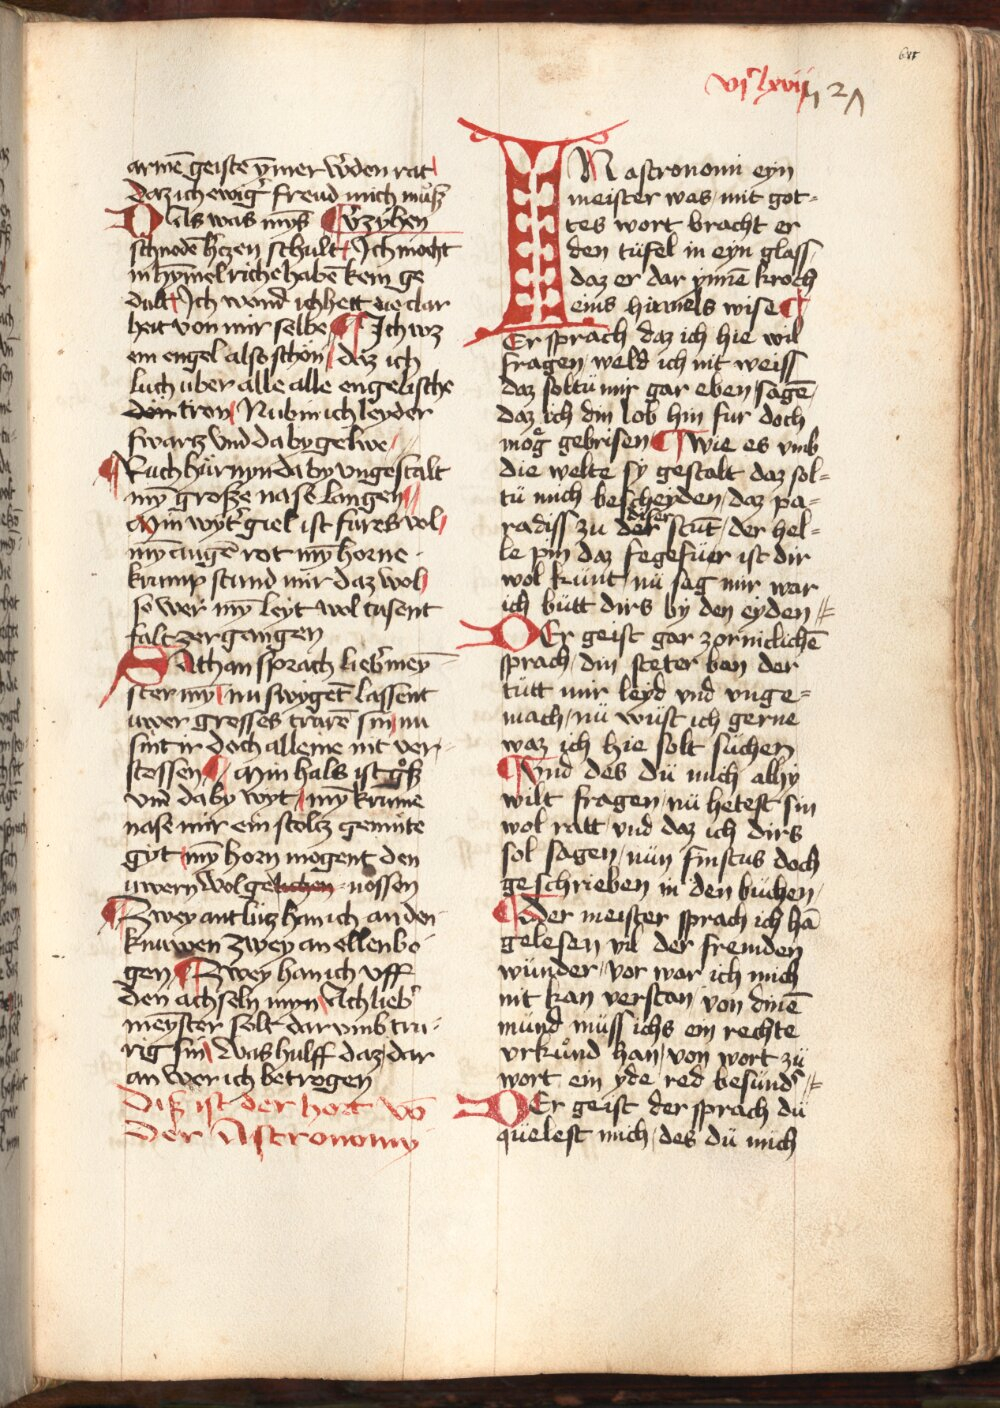 vjͨ lxvij
armē geiste ȳmer w̕den rat
daz ich ewig̕ freud mich muͦsz
Das was mȳs v̕zyhen
schnodē h̕czen schult Ich mocht
in hȳmelriche habē kein ge
dult Ich wend ich hett die clar
heit von mir selbe Ich wz
ein engel also schön daz ich
luch uber alle alle engelische
tron Nu bin ich leyder
swartz vnd da by gelwe
Ruch hür nyn da by vngestalt
mȳ grosze nase langen
Min wyt̕ giel ist fures vol
mȳ augē rot mȳ horne
krump stand mir daz wol
so wer mȳ leyt wol tusent
falt zergangen
Sathan sprach lieb̕ mey
ster mȳ nu swyget lassent
uwer grosses trurē sin nu
sint ir doch alleine nit ver
stossen Min hals ist goͤsz
vnd da by wyt mȳ krume
nase mir ein stoltz gemüte
gyt mȳ horn mogent den
uwern wol gelichen nossen
Zwey antlütz han ich an den
knuwen zwey an ellenbo
gen Zwey han ich vff
den achseln myn Ach lieb̕
meyster solt dar vmb tru
rig sin was hulff daz dar
an wer ich betrogen
Disz ist der hort vō
der Astronomy
IN astronomi eyn
meister was mit got=
tes wort bracht er
den tüfel in eyn glass
daz er dar ynnē kroch
eins himels wise
Er sprach daz ich hie wil
fragen weld ich nit weiss
daz soltu mir gar eben sagē
daz ich din lob hin fur doch
mog̊ gebrisen Wie es vmb
die welte sy gestalt daz sol=
tü mich bescheyden daz pa=
radiss zu der diser scut der hel=
le pin daz fegefüer ist dir
wol kunt nü sag mir war
ich bütt dirs by den eyden
Der geist gar zorniclichē
sprach din steter ban der
tütt mir leyd vnd vnge=
mach nü wüst ich gerne
waz ich hie solt süchen
Vnd des dü mich alhy
wilt fragen nü hetest sin
wol ratt vnd daz ich dirs
sol sagen nün finstus doch
geschrieben in den büchen
Der meister sprach ich hā
gelesen vil der fremden
wünder vor war ich mich
nit kan verstan von dinē
münd müss ichs ein rechte
vrkund han von wort zü
wort ein yde red besünd̕
Der geist der sprach dü
quelest mich des dü mich